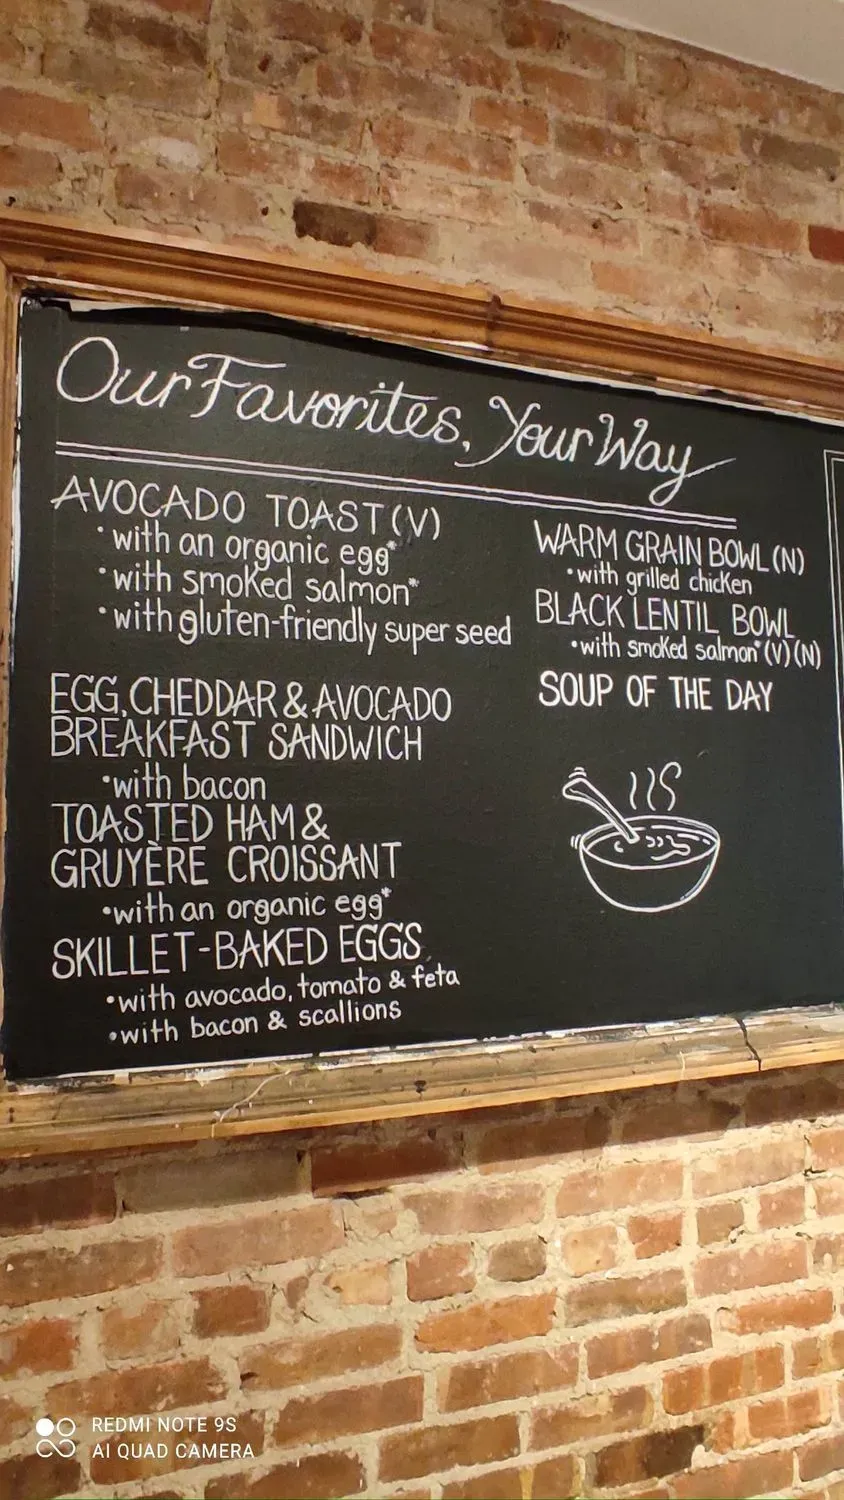 Our Favorites, Your Way
AVOCADO TOAST (V)
• with an organic egg*
• with smoked salmon*
• with gluten-friendly super seed
EGG, CHEDDAR & AVOCADO
BREAKFAST SANDWICH
• with bacon
TOASTED HAM &
GRUYÈRE CROISSANT
• with an organic egg*
SKILLET-BAKED EGGS
• with avocado, tomato & feta
• with bacon & scallions
WARM GRAIN BOWL (N)
• with grilled chicken
BLACK LENTIL BOWL
• with smoked salmon* (V) (N)
SOUP OF THE DAY
REDMI NOTE 9S
AI QUAD CAMERA